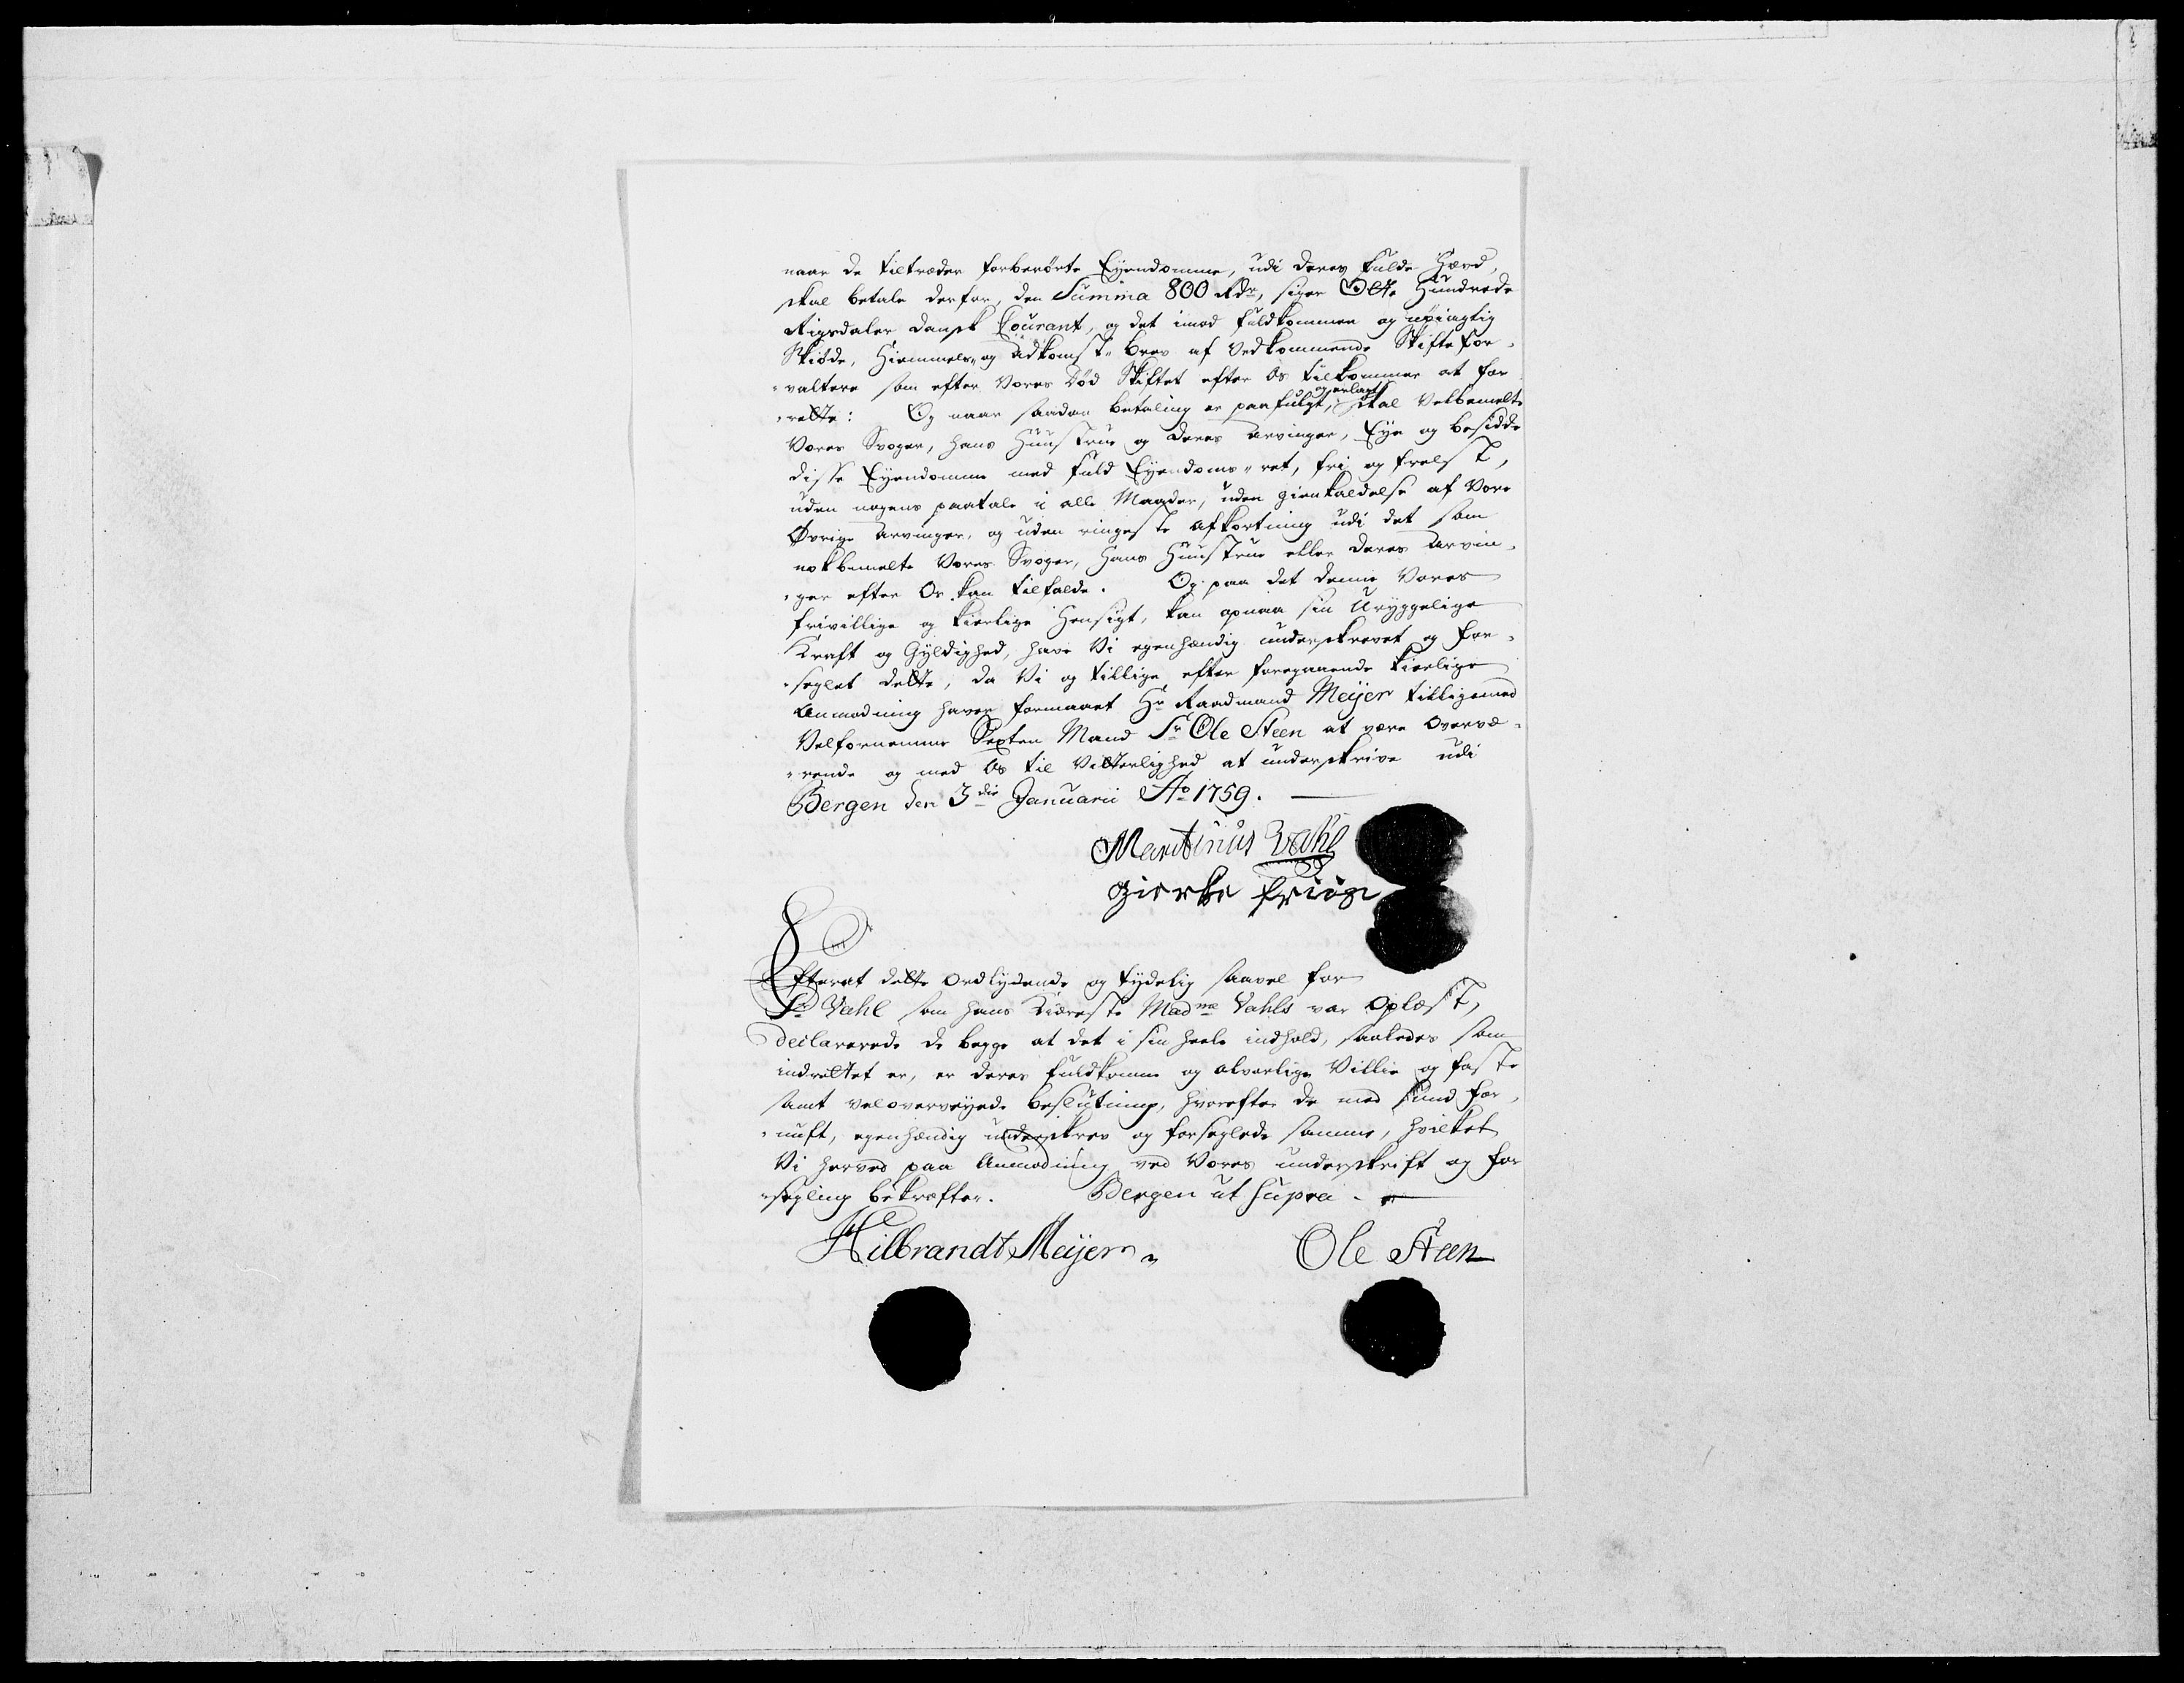 naar de tiltræder forberørte Eyendomme, udi deres fulde Hævd,
skal betale derfor, den Summa 800 Rdr, siger Otte Hundrede
Rigsdaler dansk Courant, og det imod fuldkommen og nøiagtig
Skiøde, Hiemmels- og Adkomst- brev af Vedkommende Skiftefor-
-valtere som efter Vores Død Skiftet efter Os tilkommer at for
-rette: Og naar saadan betaling er paafulgt, og erlagt skal Velbemelte
Vores Svoger, hans Huustrue og deres Arvinger, Eye og besidde
disse Eyendomme med fuld Eyendoms- ret, fri og frelst,
uden nogens paatale i alle Maader, uden gienkaldelse af Vore
Øvrige Arvinger, og uden ringeste afkortning udi det som
nokbemelte Vores Svoger, Hans Huustrue eller deres Arvin-
-ger efter Os kan tilfalde. Og paa det denne Vores
frivillige og kierlige Hensigt, kan opnaa sin Uryggelige
Kraft og Gyldighed, have Vi egenhændig underskrevet og for-
-seglet dette, da Vi og tillige efter foregaaende kierlige
Anmodning haver formaaet Hr Raadmand Meijer tilligemed
Velfornemme Sexten Mand Sr Ole Steen at være Overvæ-
-rende og med Os til Vitterlighed at underskrive udi
Bergen den 3die Januarii Ao 1759.
Martinus Vahl
Gierke Friis
Efterat dette ordlydende og tydelig saavel for
Sr Vahl som hans Kiæreste Madme Vahls var oplæst,
declarerede de begge at det i sin heele indhold, saaledes som
indrettet er, er deres fuldkomne og alvorlige Villie og faste
samt veloverveyede beslutning, hvorefter de med sund for-
-nuft, egenhændig underskrev og forseglede samme, hvilket
Vi herved paa Anmodning ved Vores underskrift og for
-segling bekræfter. Bergen ut supra.
Hilbrandt Meijer
Ole Steen